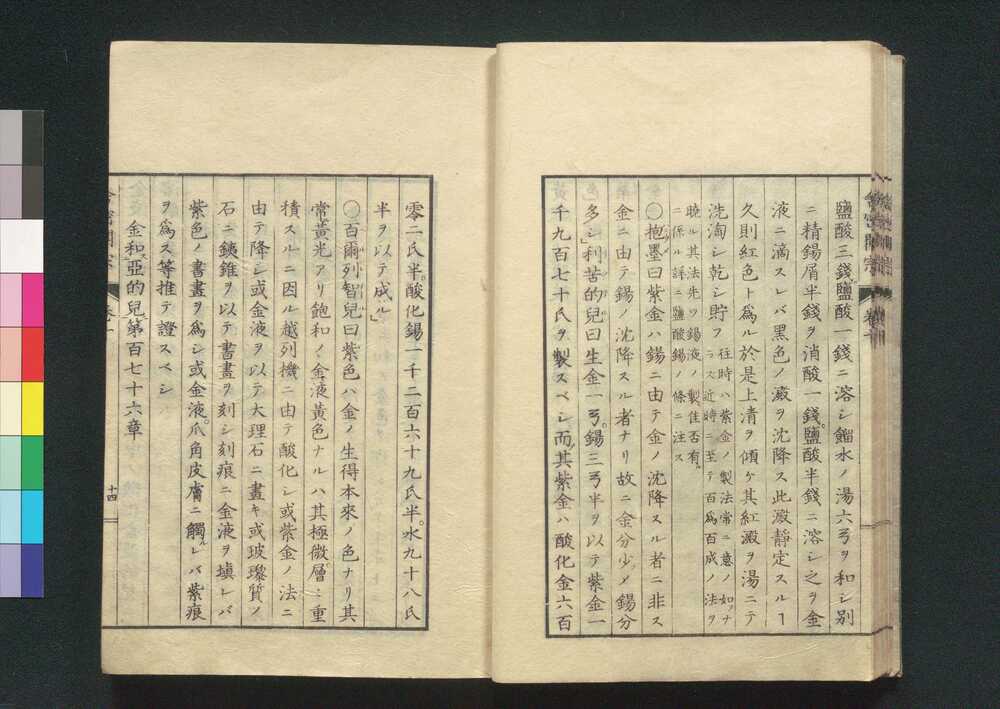 鹽酸三錢鹽酸一錢ニ溶シ餾水ノ湯六弓ヲ和シ別
ニ精錫屑半錢ヲ消酸一錢鹽酸半錢ニ溶シ之ヲ金
液ニ滴スレバ黑色ノ澱ヲ沈降ス此澱靜定スルヿ
久則紅色ト爲ル於是上清ヲ傾ケ其紅澱ヲ湯ニテ
洗淘シ乾シ貯フ
往時ハ紫金ノ製法常ニ意ノ如クナ
ラス近時ニ至テ百爲百成ノ法ヲ
曉ル其法先ツ錫液ノ製佳否有
ニ係ル詳ニ鹽酸錫ノ條ニ注ス
〇抱墨曰紫金ハ錫ニ由テ金ノ沈降スル者ニ非ス
金ニ由テ錫ノ沈降スル者ナリ故ニ金分少メ錫分
多シ利苦的兒曰生金一弓錫三弓半ヲ以テ紫金一
千九百七十氏ヲ製スベシ而其紫金ハ酸化金六百
零二氏半酸化錫一千二百六十九氏半水九十八氏
半ヲ以テ成ル
〇百爾列智兒曰紫色ハ金ノ生得本來ノ色ナリ其
常黃光アリ飽和ノ金液黃色ナルハ其極微層ニ重
積スルニ因ル越列機ニ由テ酸化シ或紫金ノ法ニ
由テ降シ或金液ヲ以テ大理石ニ畫キ或玻瓈質ノ
石ニ鐵錐ヲ以テ書畫ヲ刻シ刻痕ニ金液ヲ塡レバ
紫色ノ書畫ヲ爲シ或金液爪角皮膚ニ觸ルレバ紫痕
ヲ爲ス等推テ證スベシ
金和亞的兒第百七十六章
十四